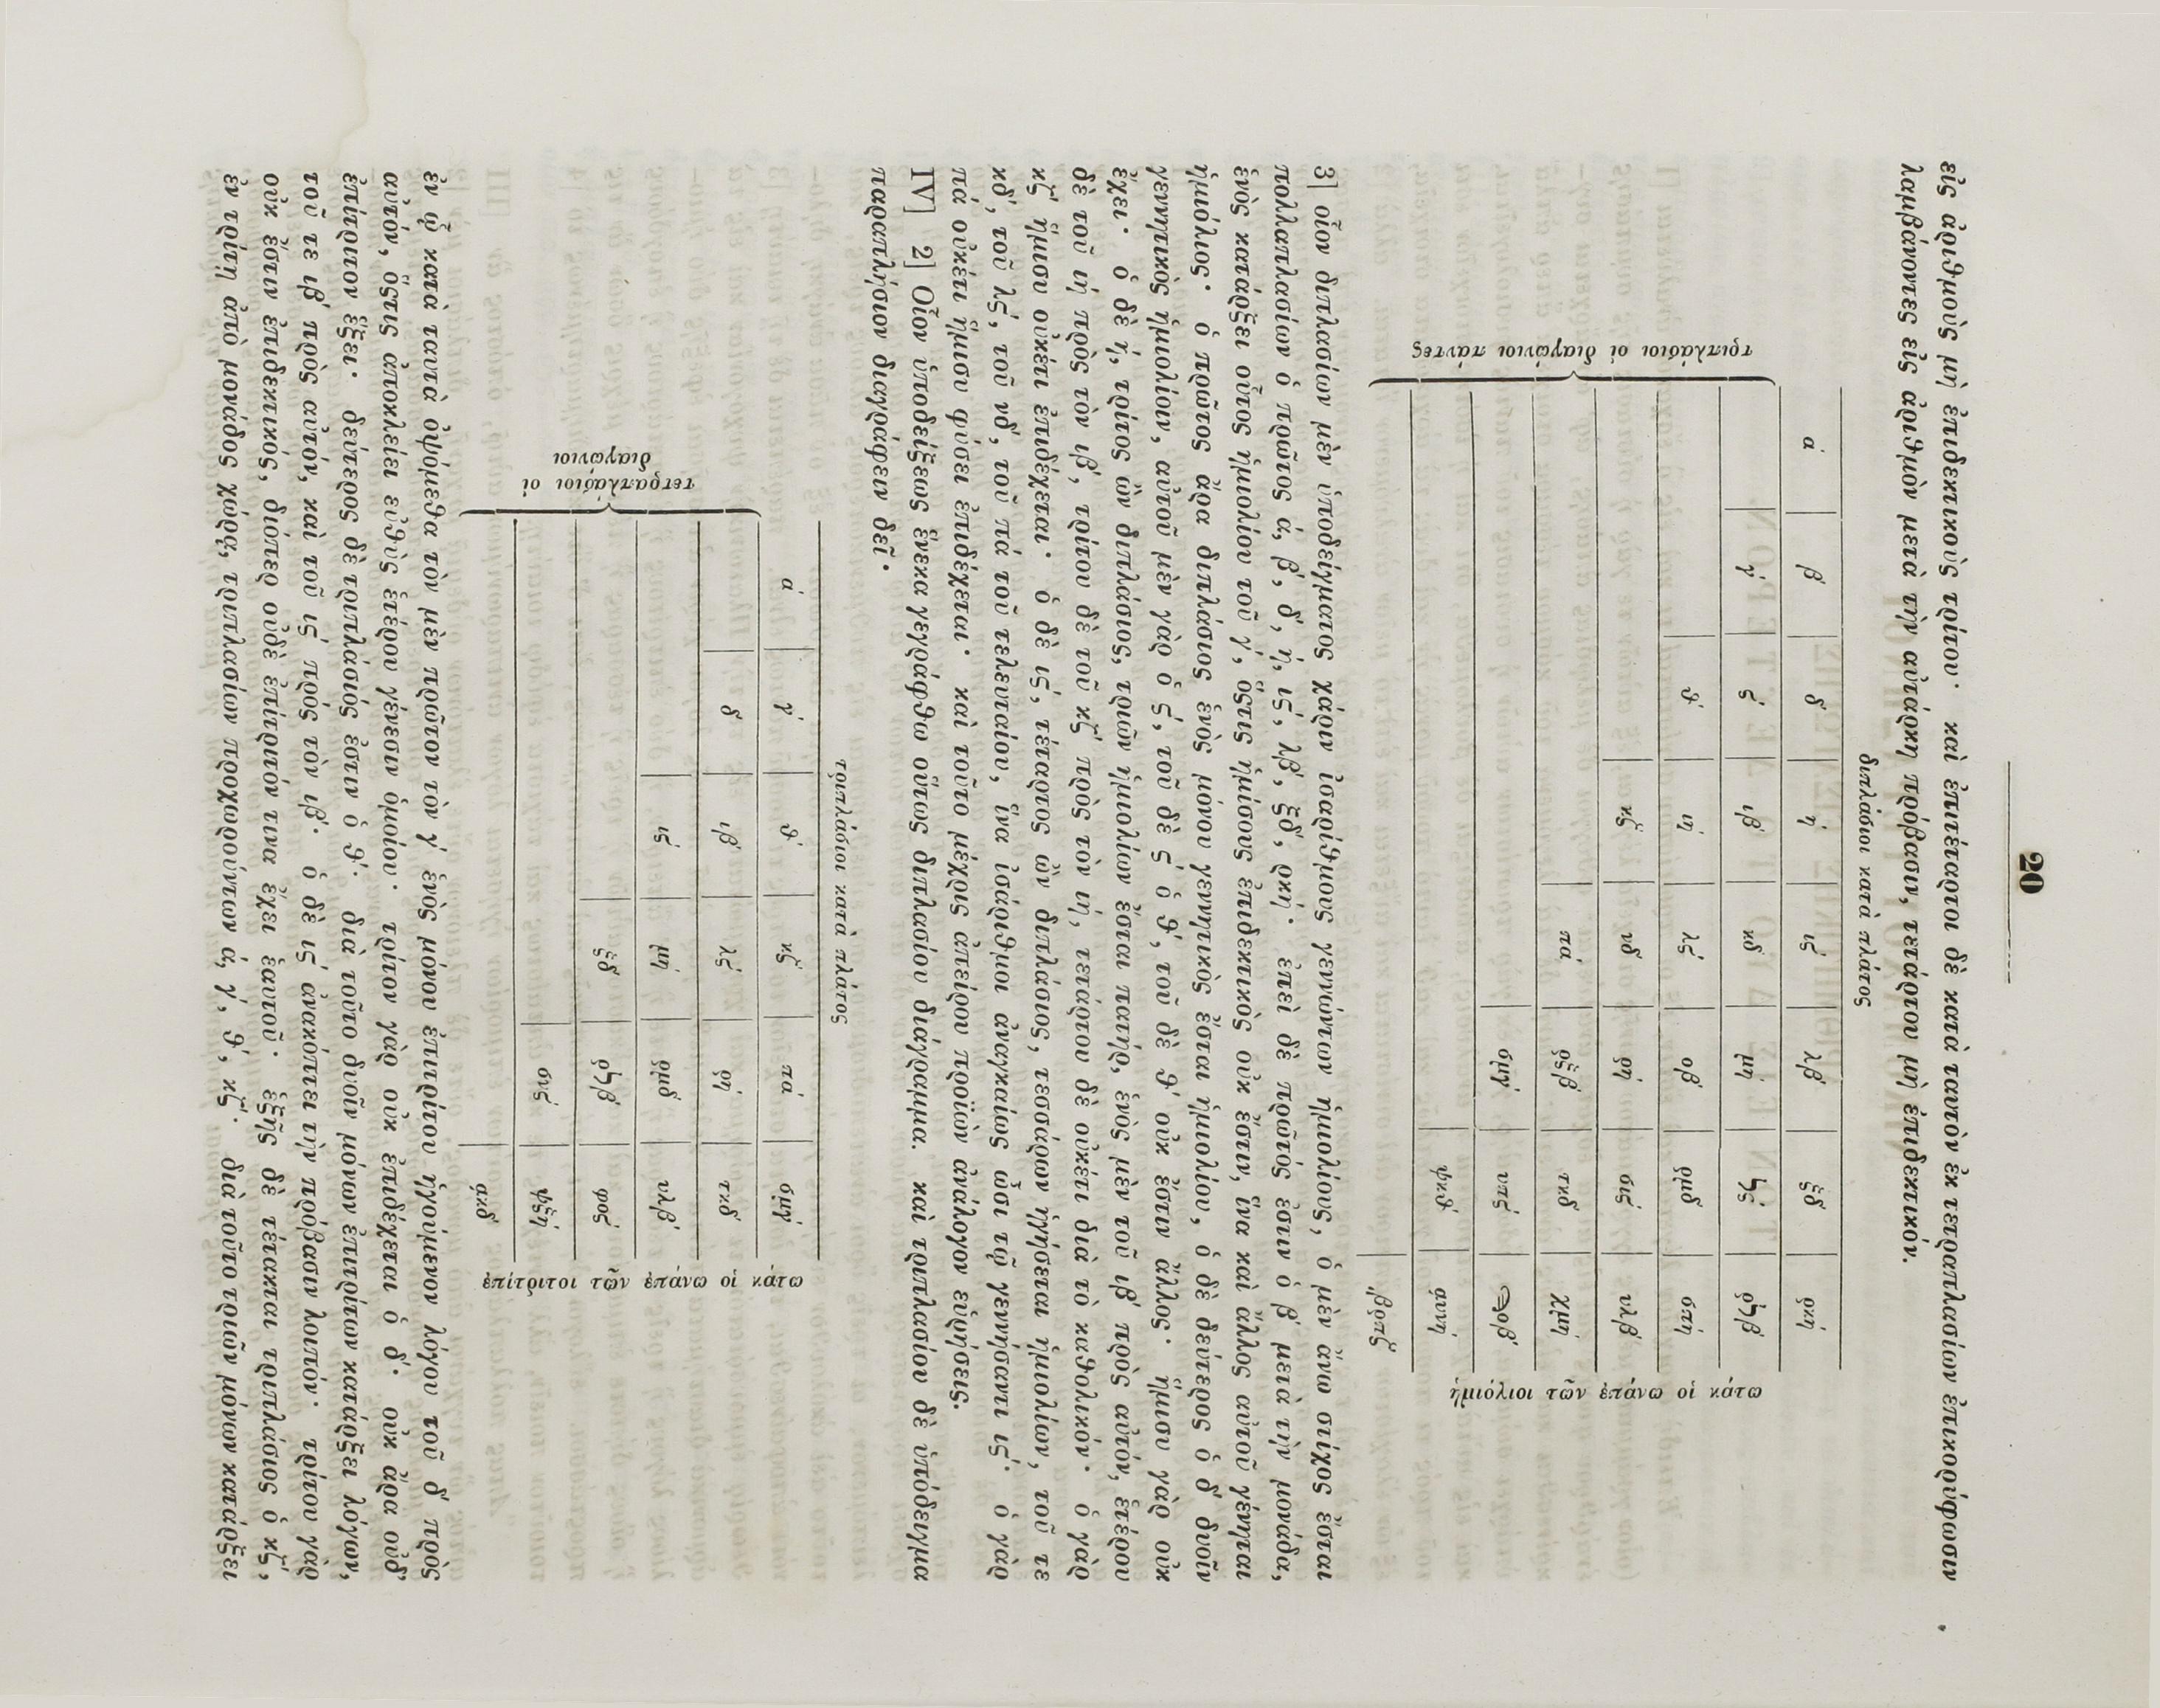 20
εἰς ἀριθμοὺς μὴ ἐπιδεκτικοὺς τρίτου. καὶ ἐπιτέταρτοι δὲ κατὰ ταυτὸν ἐκ τετραπλασίων ἐπικορύφωσιν
λαμβάνοντες εἰς ἀριθμὸν μετὰ τὴν αὐτάρκη πρόβασιν, τετάρτου μὴ ἐπιδεκτικόν.
διπλάσιοι κατὰ πλάτος
ά β δ ή ιϛ́ λβ́ ξδ́ ρκή
γ́ ϛ́ ιβ́ κδ́ μή ϟϛ́ ρϟβ́
θ́ ιή λϛ́ οβ́ ρμδ́ σπή
κζ́ νδ́ ρή σιϛ́ υλβ́
πά ρξβ́ τκδ́ χμή
σμγ́ υπϛ́ ϡοβ́
ψκθ́ ͵αυνή
͵βρπζ́
τριπλάσιοι οἱ διαγώνιοι πάντες
ἡμιόλιοι τῶν ἐπάνω οἱ κάτω
3] οἷον διπλασίων μὲν ὑποδείγματος χάριν ἰσαρίθμους γεννώντων ἡμιολίους, ὁ μὲν ἄνω στίχος ἔσται
πολλαπλασίων ὁ πρῶτος ά, β́, δ́, ή, ιϛ́, λβ́, ξδ́, ρκή. ἐπεὶ δὲ πρῶτός ἐστιν ὁ β́ μετὰ τὴν μονάδα,
ἑνὸς κατάρξει οὗτος ἡμιολίου τοῦ γ́, ὅςτις ἡμίσους ἐπιδεκτικὸς οὐκ ἔστιν, ἵνα καὶ ἄλλος αὐτοῦ γένηται
ἡμιόλιος. ὁ πρῶτος ἄρα διπλάσιος ἑνὸς μόνου γεννητικὸς ἔσται ἡμιολίου, ὁ δὲ δεύτερος ὁ δ́ δυοῖν
γεννητικὸς ἡμιολίοιν, αὐτοῦ μὲν γὰρ ὁ ϛ́, τοῦ δὲ ϛ́ ὁ θ́, τοῦ δὲ θ́ οὐκ ἔστιν ἄλλος. ἥμισυ γὰρ οὐκ
ἔχει. ὁ δὲ ή, τρίτος ὢν διπλάσιος, τριῶν ἡμιολίων ἔσται πατήρ, ἑνὸς μὲν τοῦ ιβ́ πρὸς αὐτόν, ἑτέρου
δὲ τοῦ ιή πρὸς τὸν ιβ́, τρίτου δὲ τοῦ κζ́ πρὸς τὸν ιή, τετάρτου δὲ οὐκέτι διὰ τὸ καθολικόν. ὁ γὰρ
κζ́ ἥμισυ οὐκέτι ἐπιδέχεται. ὁ δὲ ιϛ́, τέταρτος ὢν διπλάσιος, τεσσάρων ἡγήσεται ἡμιολίων, τοῦ τε
κδ́, τοῦ λϛ́, τοῦ νδ́, τοῦ πά τοῦ τελευταίου, ἵνα ἰσάριθμοι ἀναγκαίως ὦσι τῷ γεννήσαντι ιϛ́. ὁ γὰρ
πά οὐκέτι ἥμισυ φύσει ἐπιδέχεται. καὶ τοῦτο μέχρις ἀπείρου προϊὼν ἀνάλογον εὑρήσεις.
IV] 2] Οἷον ὑποδείξεως ἕνεκα γεγράφθω οὕτως διπλασίου διάγραμμα. καὶ τριπλασίου δὲ ὑπόδειγμα
παραπλήσιον διαγράφειν δεῖ.
τριπλάσιοι κατὰ πλάτος
ά γ́ θ́ κζ́ πά σμγ́
δ́ ιβ́ λϛ́ ρή τκδ́
ιϛ́ μή ρμδ́ υλβ́
ξδ́ ρϟβ́ φοϛ́
σνϛ́ ψξή
͵ακδ́
τετραπλάσιοι οἱ
διαγώνιοι
ἐπίτριτοι τῶν ἐπάνω οἱ κάτω
ἐν ᾧ κατὰ ταυτὰ ὁρώμεθα τὸν μὲν πρῶτον τὸν γ́ ἑνὸς μόνου ἐπιτρίτου ἡγούμενον λόγου τοῦ δ́ πρὸς
αὐτόν, ὅςτις ἀποκλείει εὐθὺς ἑτέρου γένεσιν ὁμοίου. τρίτον γὰρ οὐκ ἐπιδέχεται ὁ δ́. οὐκ ἄρα οὐδ'
ἐπίτριτον ἕξει. δεύτερος δὲ τριπλάσιός ἐστιν ὁ θ́. διὰ τοῦτο δυοῖν μόνων ἐπιτρίτων κατάρξει λόγων,
τοῦ τε ιβ́ πρὸς αὐτόν, καὶ τοῦ ιϛ́ πρὸς τὸν ιβ́. ὁ δὲ ιϛ́ ἀνακόπτει τὴν πρόβασιν λοιπόν. τρίτου γὰρ
οὐκ ἔστιν ἐπιδεκτικός, διόπερ οὐδὲ ἐπίτριτόν τινα ἕξει ἑαυτοῦ. ἑξῆς δὲ τέτακται τριπλάσιος ὁ κζ́,
ἐν τρίτῃ ἀπὸ μονάδος χώρᾳ, τριπλασίων προχωρούντων ά, γ́, θ́, κζ́. διὰ τοῦτο τριῶν μόνων κατάρξει